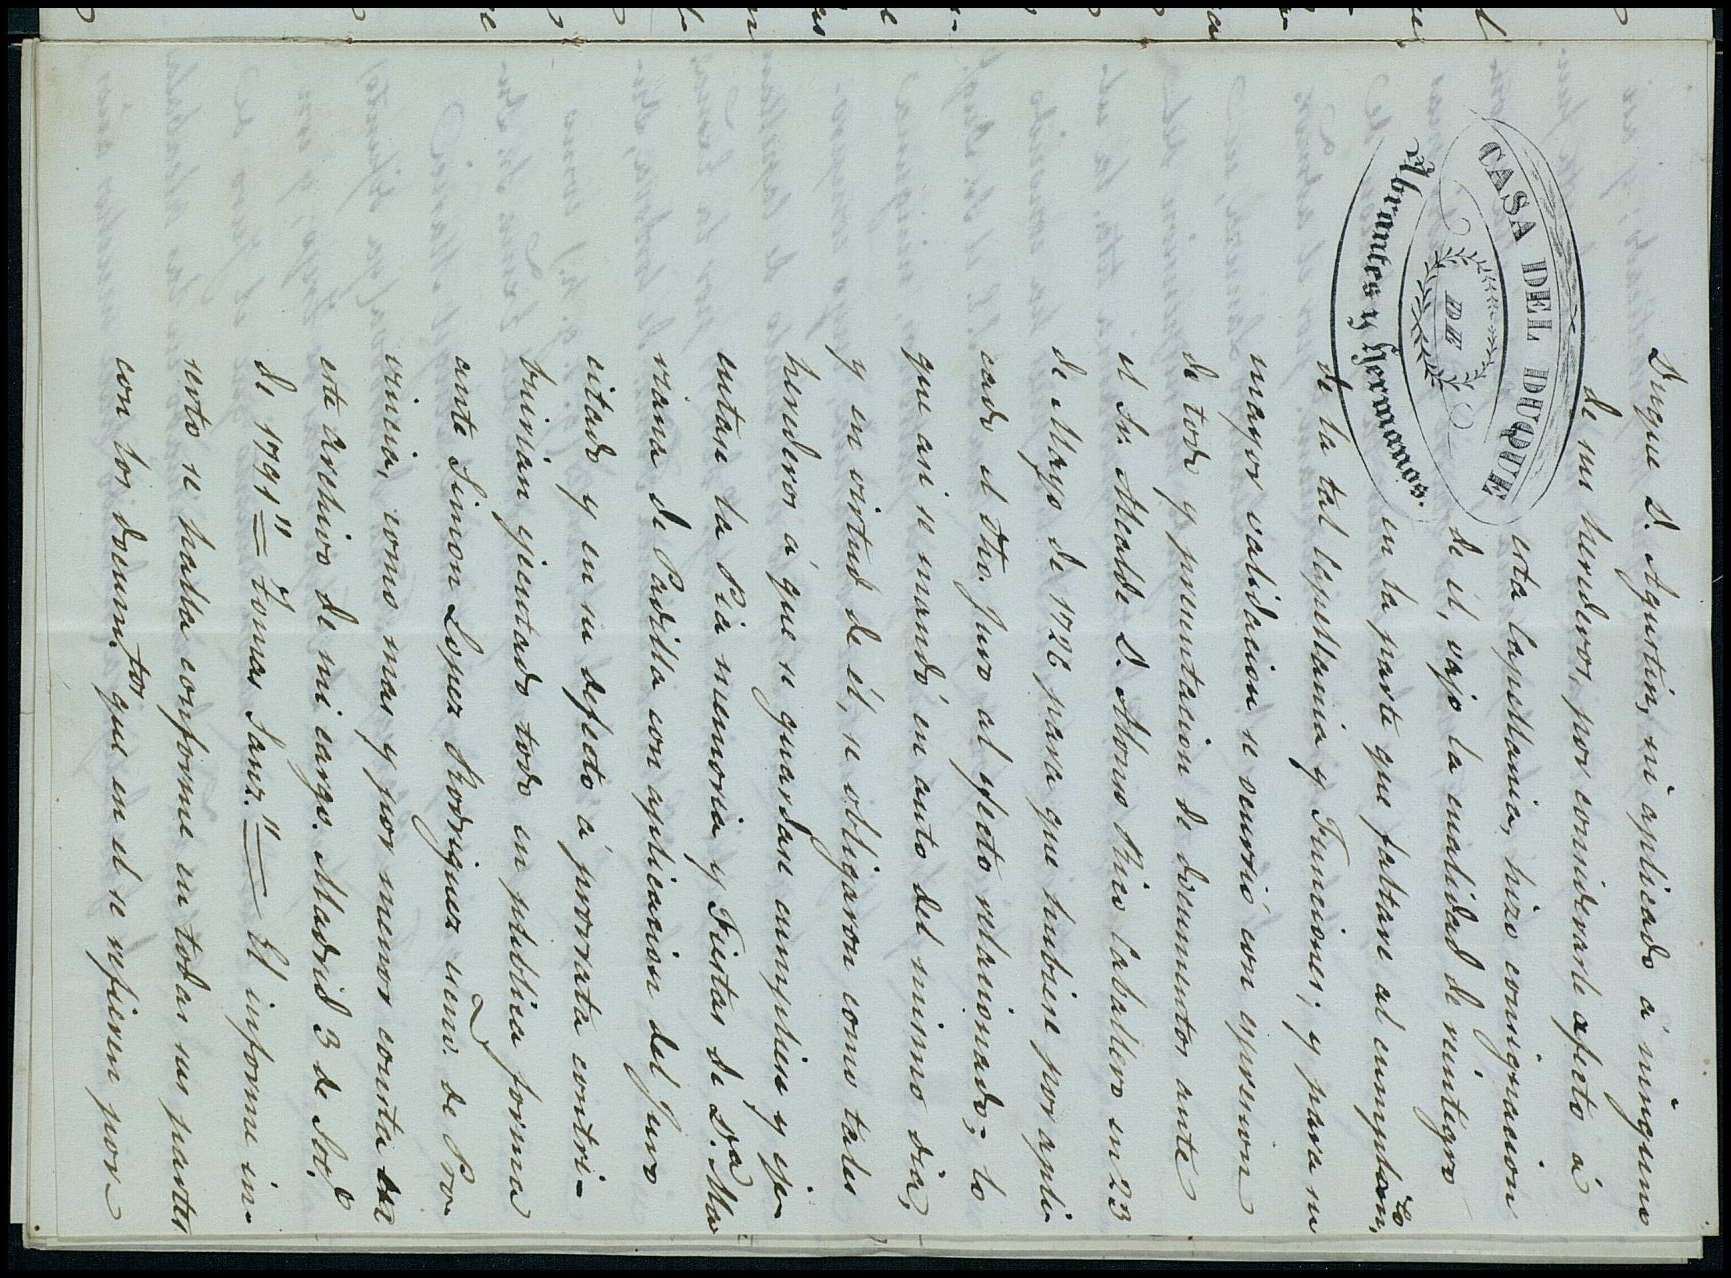 CASA DEL DUQUE
DE
Abrantes y Hermanos.
Duque D. Agustin, ni aplicado á ninguno
de sus herederos, por considerarle afecto á
esta Capellania, hizo consignacion
de él, vajo la cualidad de reintegro
en la parte que faltase al cumplim.to
de la tal Capellania y Funciones; y para su
mayor validacion se recurrió con expresion
de todo y presentacion de documentos ante
el Sr. Alcalde D. Alonso Rico Caballero en 23
de Mayo de 1726 para que hubiese por apli-
cado el dho. Juro al efecto relacionado; lo
que asi se mandó en auto del mismo dia,
y en virtud de él, se obligaron como tales
herederos á que se guardase cumpliese y eje-
cutase la Pia memoria y Fiestas de D.a Ma-
riana de Padilla con aplicacion del Juro
citado y en su defecto á prorrata contri-
buirian ejecutado todo en publica forma
ante Simon Lopez Rodriguez escno. de Pro-
vincia, como mas y por menor consta del
este archivo de mi cargo. Madrid 3 de Sbre.
de 1791" = Tomas Sanz." = El informe in-
serto se halla conforme en todas sus partes
con los documtos que en el se refieren por